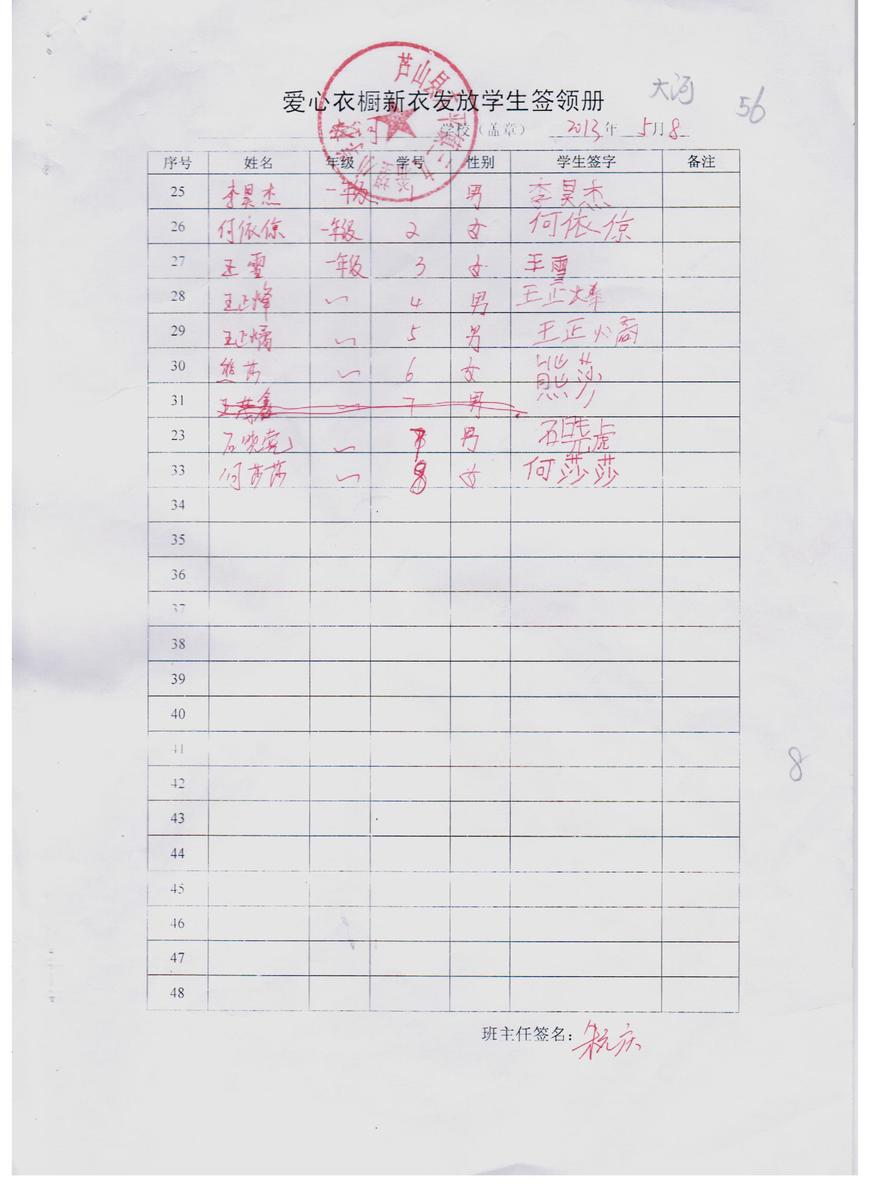 大河
56
爱心衣橱新衣发放学生签领册
学校（盖章） 2013年 5月8
序号 姓名 年级 学号 性别 学生签字 备注
25 李昊杰 一年级 1 男 李昊杰
26 何依倞 一年级 2 女 何依倞
27 王雪 一年级 3 女 王雪
28 王正烽 〃 4 男 王正烽
29 王正燏 〃 5 男 王正燏
30 熊莎 〃 6 女 熊莎
31 〃 7 男
23 石晓虎 〃 7 男 石晓虎
33 何莎莎 〃 8 女 何莎莎
34
35
36
37
38
39
40
41
8
42
43
44
45
46
47
48
班主任签名：